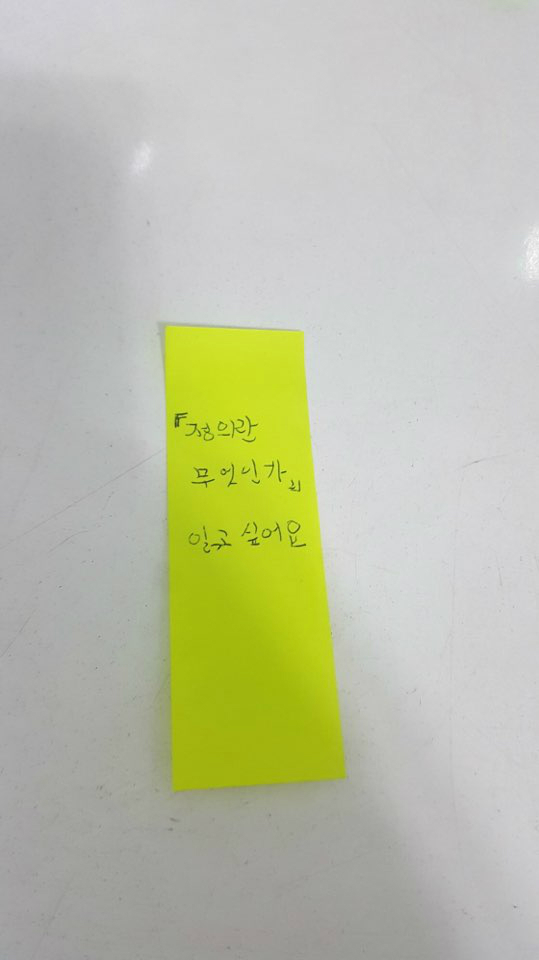 『정의란
무엇인가』
읽고 싶어요